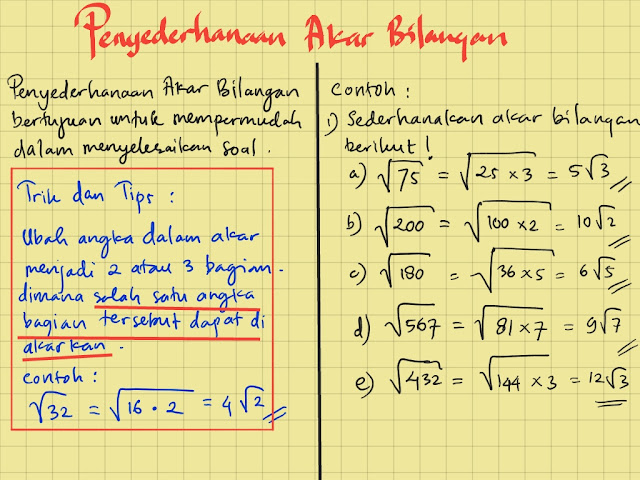 Penyederhanaan Akar Bilangan
Penyederhanaan Akar Bilangan
bertujuan untuk mempermudah
dalam menyelesaikan soal.
Trik dan Tips :
Ubah angka dalam akar
menjadi 2 atau 3 bagian.
dimana salah satu angka
bagian tersebut dapat di
akarkan.
Contoh :
√32 = √16 · 2 = 4√2
Contoh :
1) Sederhanakan akar bilangan
berikut !
a) √75 = √25 × 3 = 5√3
b) √200 = √100 × 2 = 10√2
c) √180 = √36 × 5 = 6√5
d) √567 = √81 × 7 = 9√7
e) √432 = √144 × 3 = 12√3